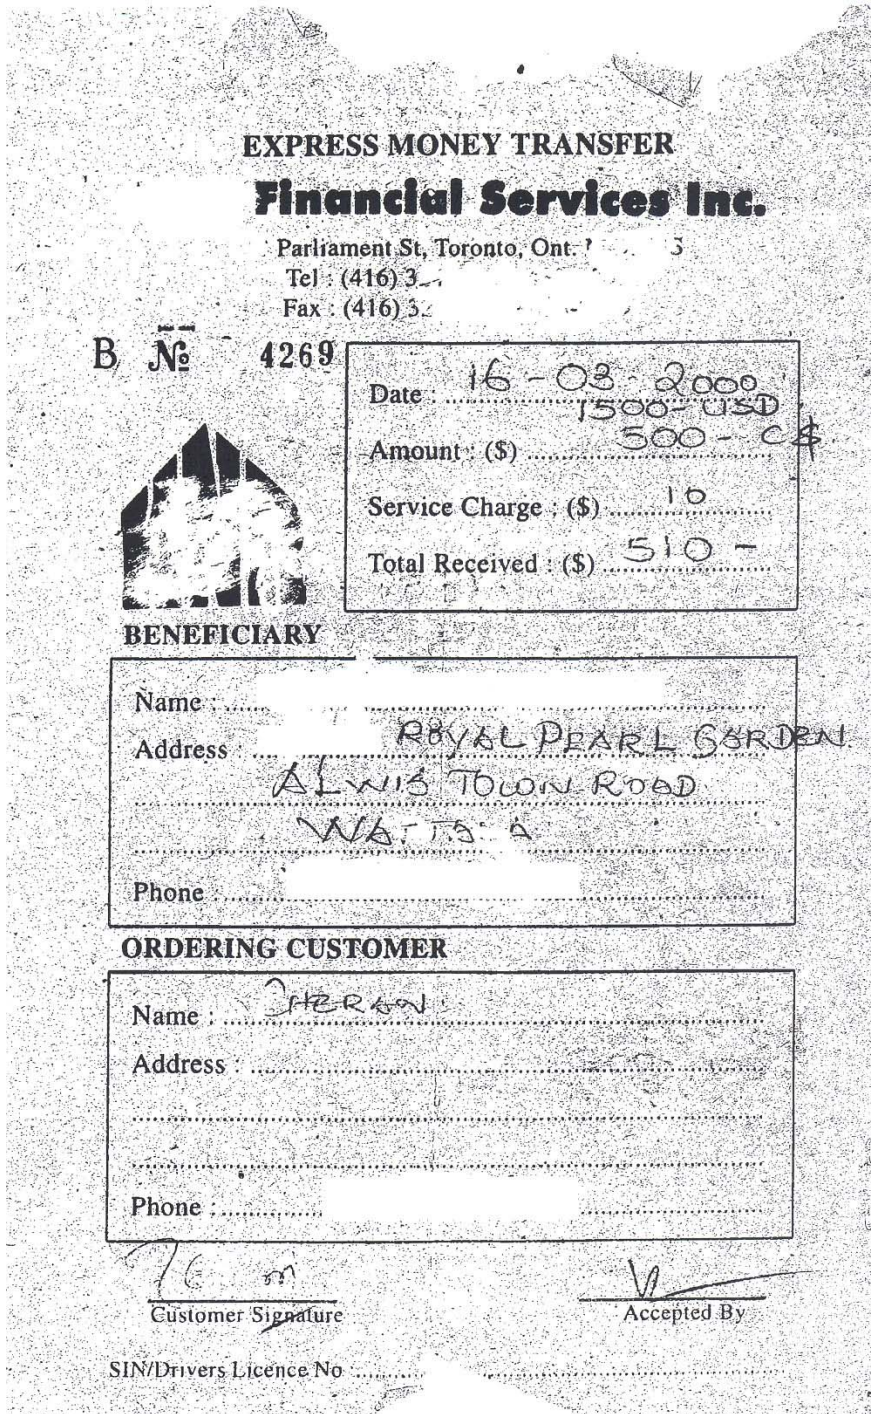 EXPRESS MONEY TRANSFER
Financial Services Inc.
Parliament St, Toronto, Ont.
Tel : (416) 3
Fax : (416) 3
B № 4269
Date : 16 - 03 - 2000
1500 - USD
Amount : ($) 500 - C$
Service Charge : ($) 10
Total Received : ($) 510 -
BENEFICIARY
Name :
Address : ROYAL PEARL GARDEN
ALWIS TOWN ROAD
Phone :
ORDERING CUSTOMER
Name :
Address :
Phone :
Customer Signature
Accepted By
SIN/Drivers Licence No :